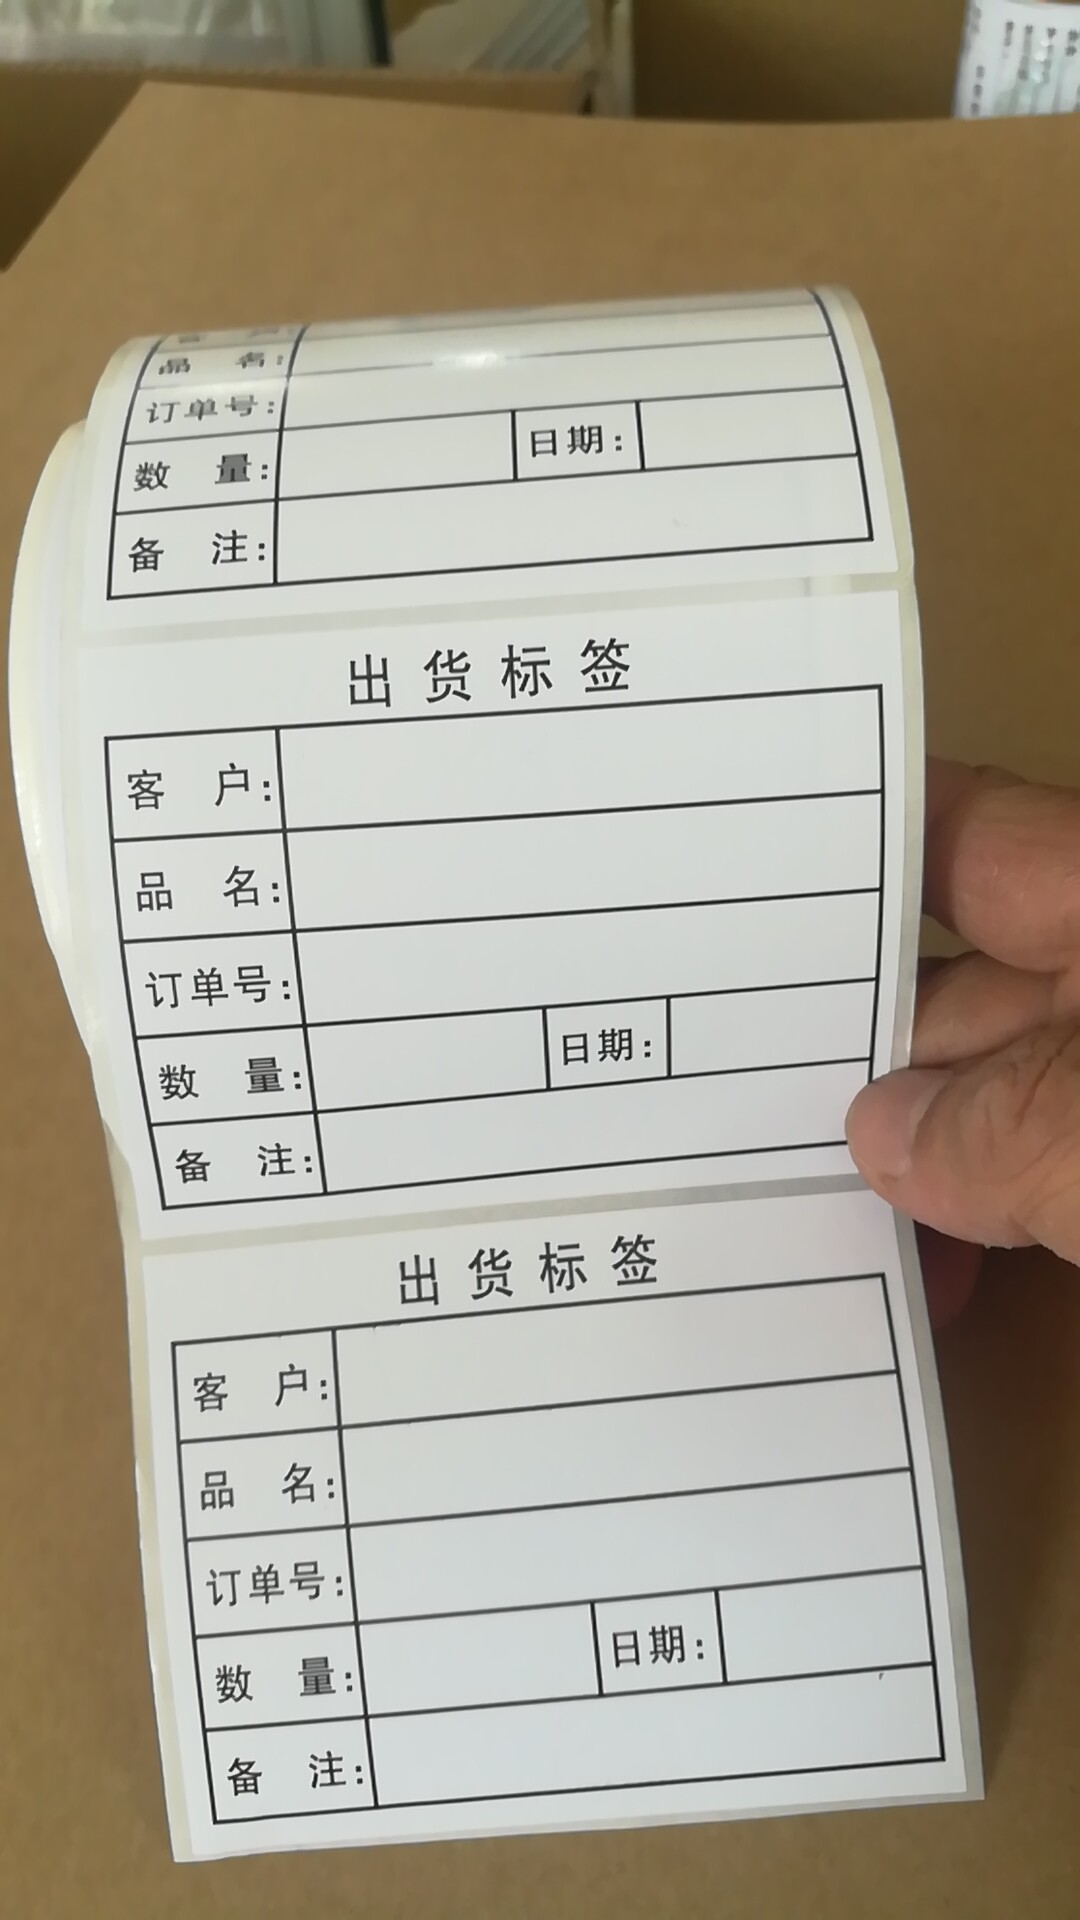 品 名:
订单号:
数 量: 日期:
备 注:
出货标签
客 户:
品 名:
订单号:
数 量: 日期:
备 注:
出货标签
客 户:
品 名:
订单号:
数 量: 日期:
备 注: